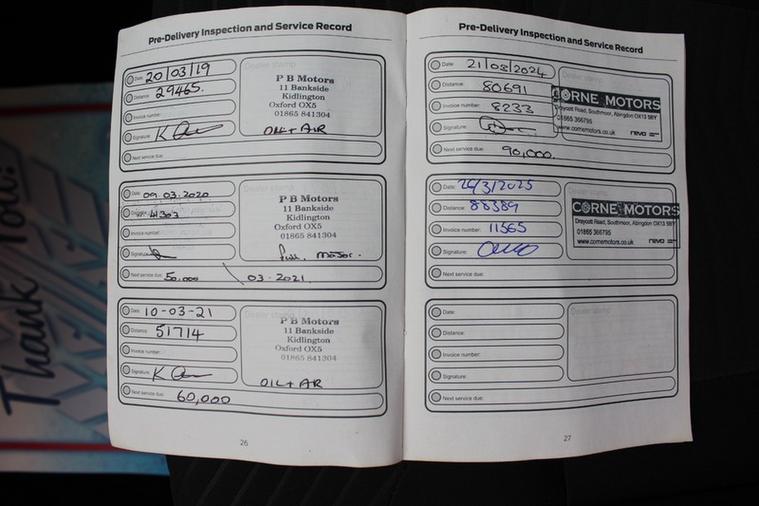 Pre-Delivery Inspection and Service Record
Date: 20/03/19
Distance: 29465.
Invoice number:
Signature:
Next service due:
Dealer stamp
P B Motors
11 Bankside
Kidlington
Oxford OX5
01865 841304
OIL + AIR
Date: 09.03.2020
Distance: 41303
Invoice number:
Signature:
Next service due: 50,000 \ 03-2021
P B Motors
11 Bankside
Kidlington
Oxford OX5
01865 841304
Full major.
Date: 10-03-21
Distance: 51714
Invoice number:
Signature:
Next service due: 60,000
Dealer stamp
P B Motors
11 Bankside
Kidlington
Oxford OX5
01865 841304
OIL + AIR
26
Pre-Delivery Inspection and Service Record
Date: 21/03/2024
Distance: 80691
Invoice number: 8233
Signature:
Next service due: 90,000.
Dealer stamp
CORNE MOTORS
Draycott Road, Southmoor, Abingdon OX13 5BY
01865 366795
www.cornemotors.co.uk revo
Date: 26/3/2025
Distance: 88389
Invoice number: 11565
Signature:
Next service due:
Dealer stamp
CORNE MOTORS
Draycott Road, Southmoor, Abingdon OX13 5BY
01865 366795
www.cornemotors.co.uk revo
Date:
Distance:
Invoice number:
Signature:
Next service due:
Dealer stamp
27
Thank You!